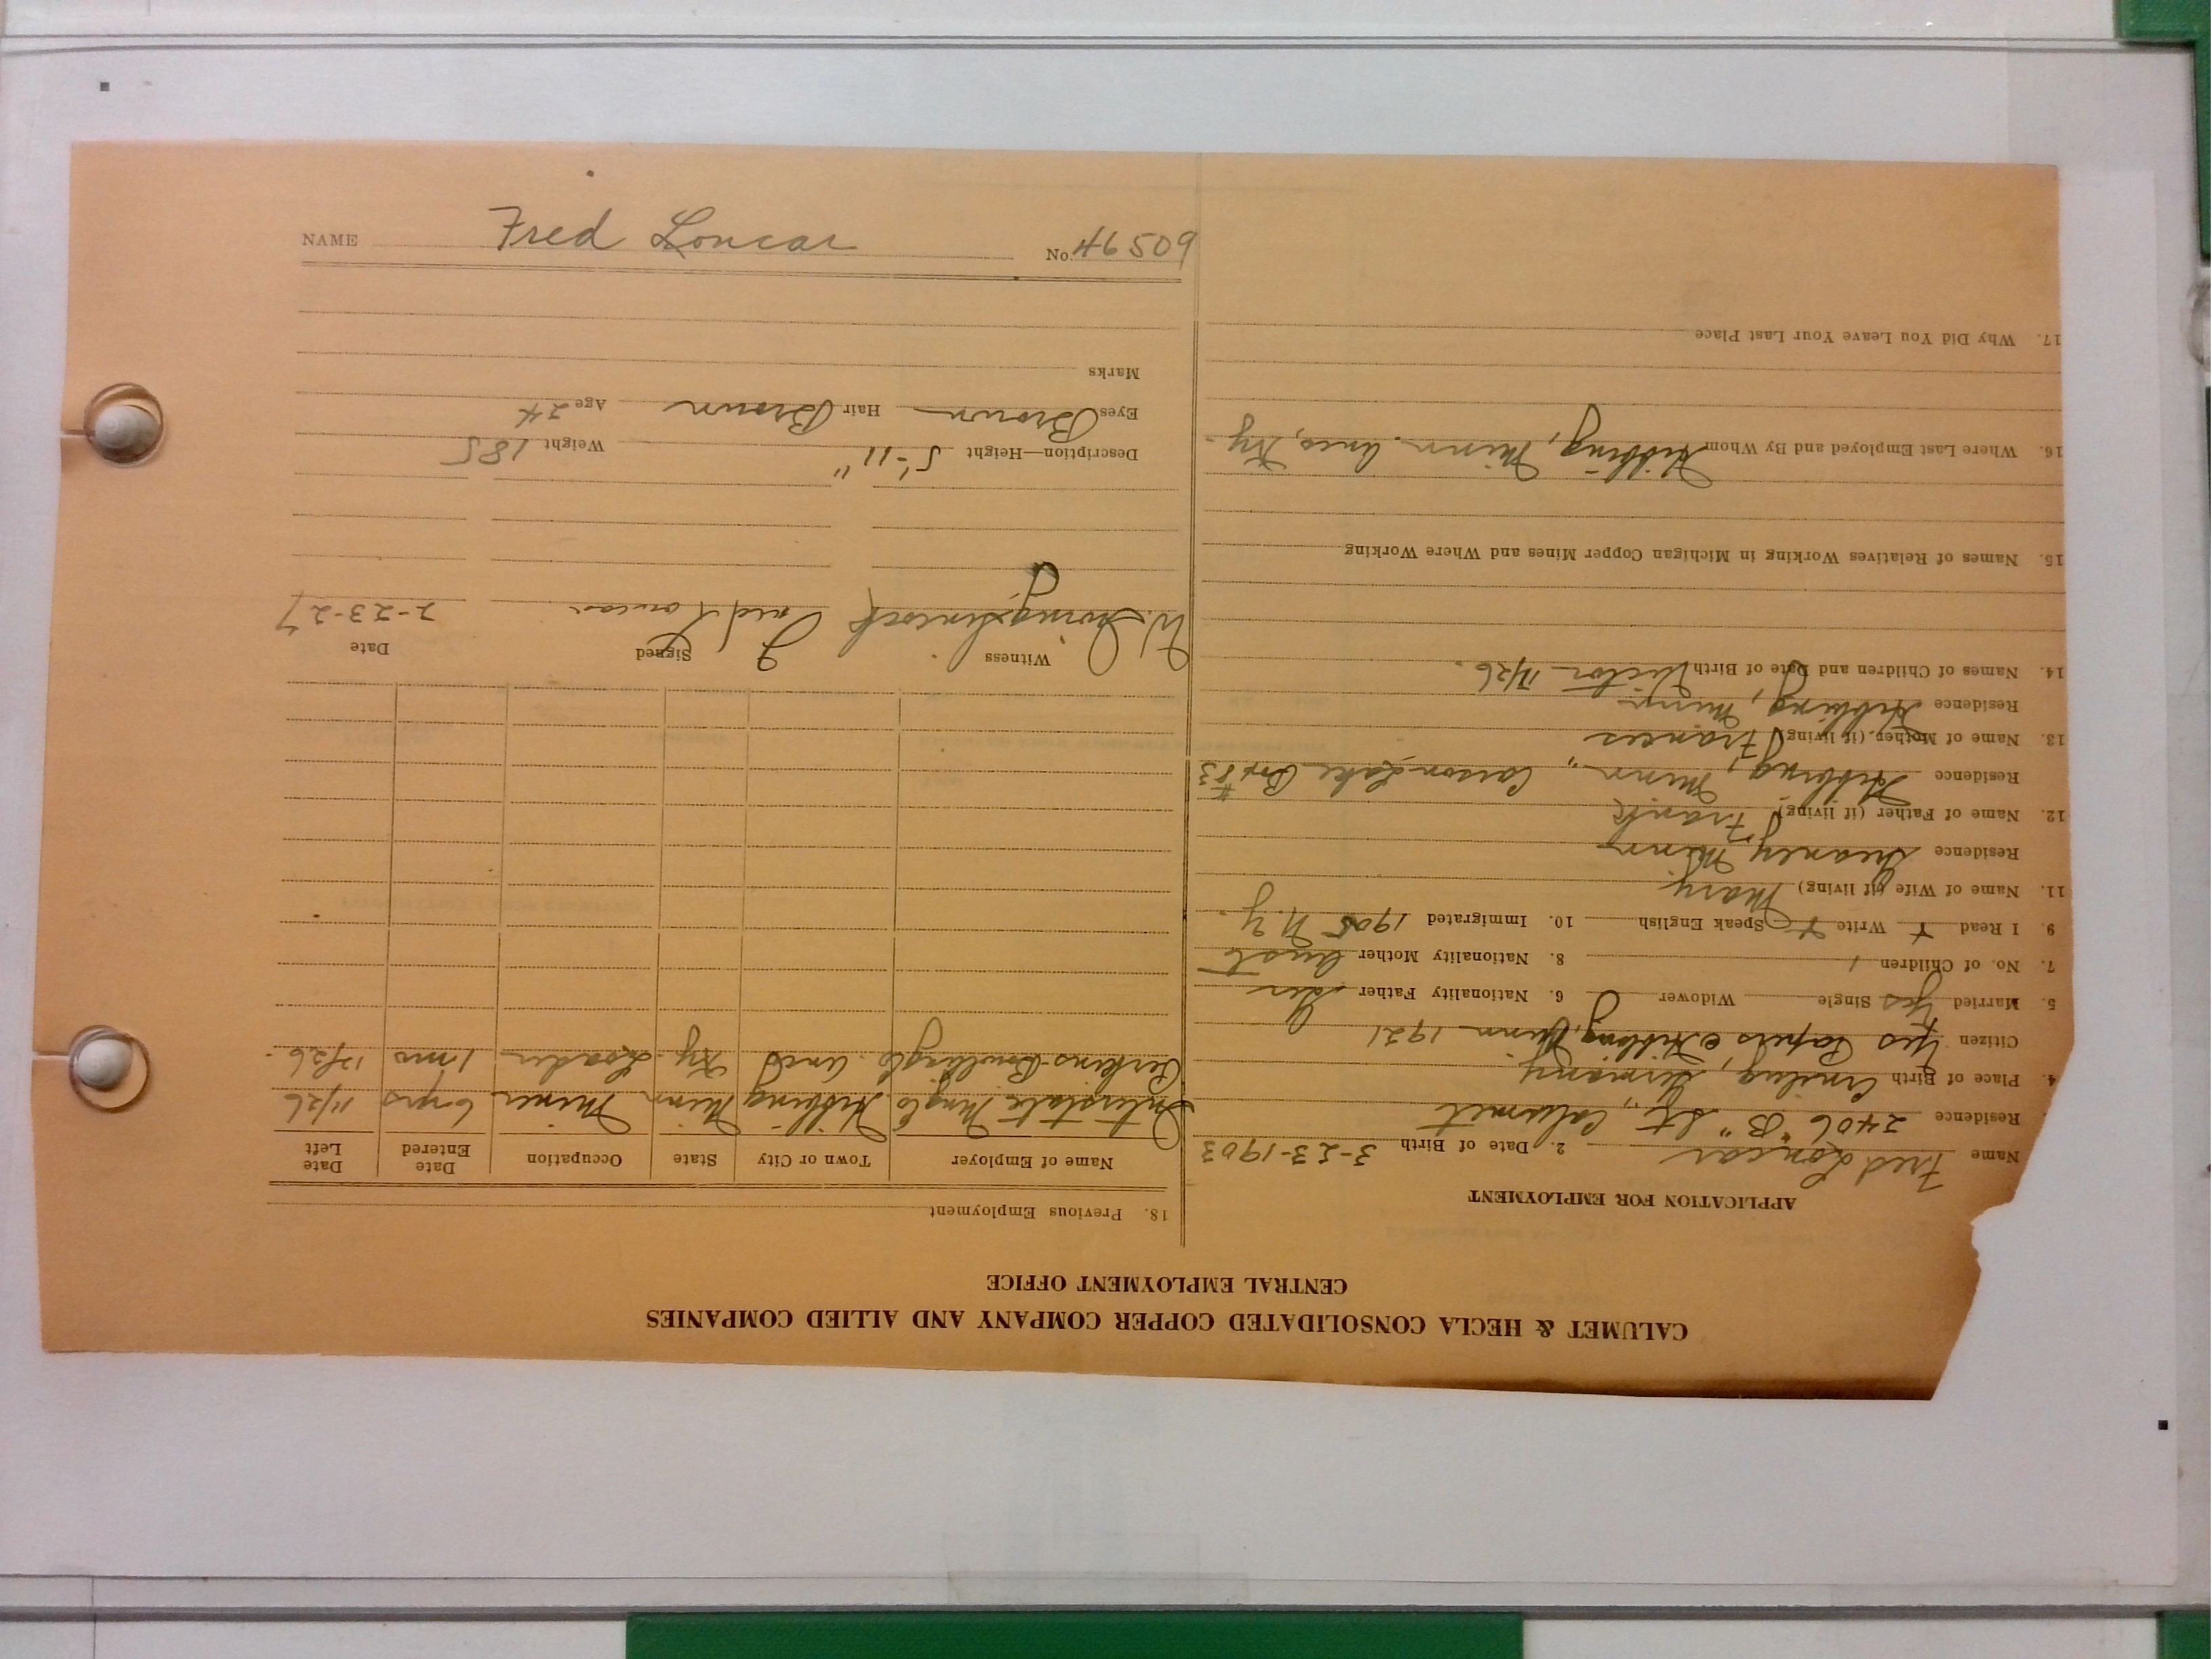 NAME Fred Loncar No. 46509
CALUMET & HECLA CONSOLIDATED COPPER COMPANY AND ALLIED COMPANIES
CENTRAL EMPLOYMENT OFFICE
APPLICATION FOR EMPLOYMENT
Name Fred Loncar 2. Date of Birth 3-23-1903
Residence 2406 "B" St., Calumet
4. Place of Birth Germany
Citizen Yes Papers Hibbing, Minn 1921
5. Married Yes Single Widower 6. Nationality Father Ger
7. No. of Children 1 8. Nationality Mother Aust
9. I Read Write Speak English 10. Immigrated 1905 N.Y.
11. Name of Wife (if living) Mary
Residence Minn
12. Name of Father (if living) Frank
Residence Hibbing, Minn Carson Lake Box #83
13. Name of Mother (if living) Frances
Residence Hibbing, Minn
14. Names of Children and Date of Birth Victor 11/26.
15. Names of Relatives Working in Michigan Copper Mines and Where Working
16. Where Last Employed and By Whom Hibbing, Minn. Ky.
17. Why Did You Leave Your Last Place
18. Previous Employment
Name of Employer Town or City State Occupation Date Entered Date Left
Interstate Hibbing Minn Miner 6 yrs 11/26
Perkins Bowling Co. Ky. Loader 1 mo 12/26.
Witness Signed Date
W. Fred Loncar 2-23-27
Description—Height 5'-11" Weight 185
Eyes Brown Hair Brown Age 24
Marks